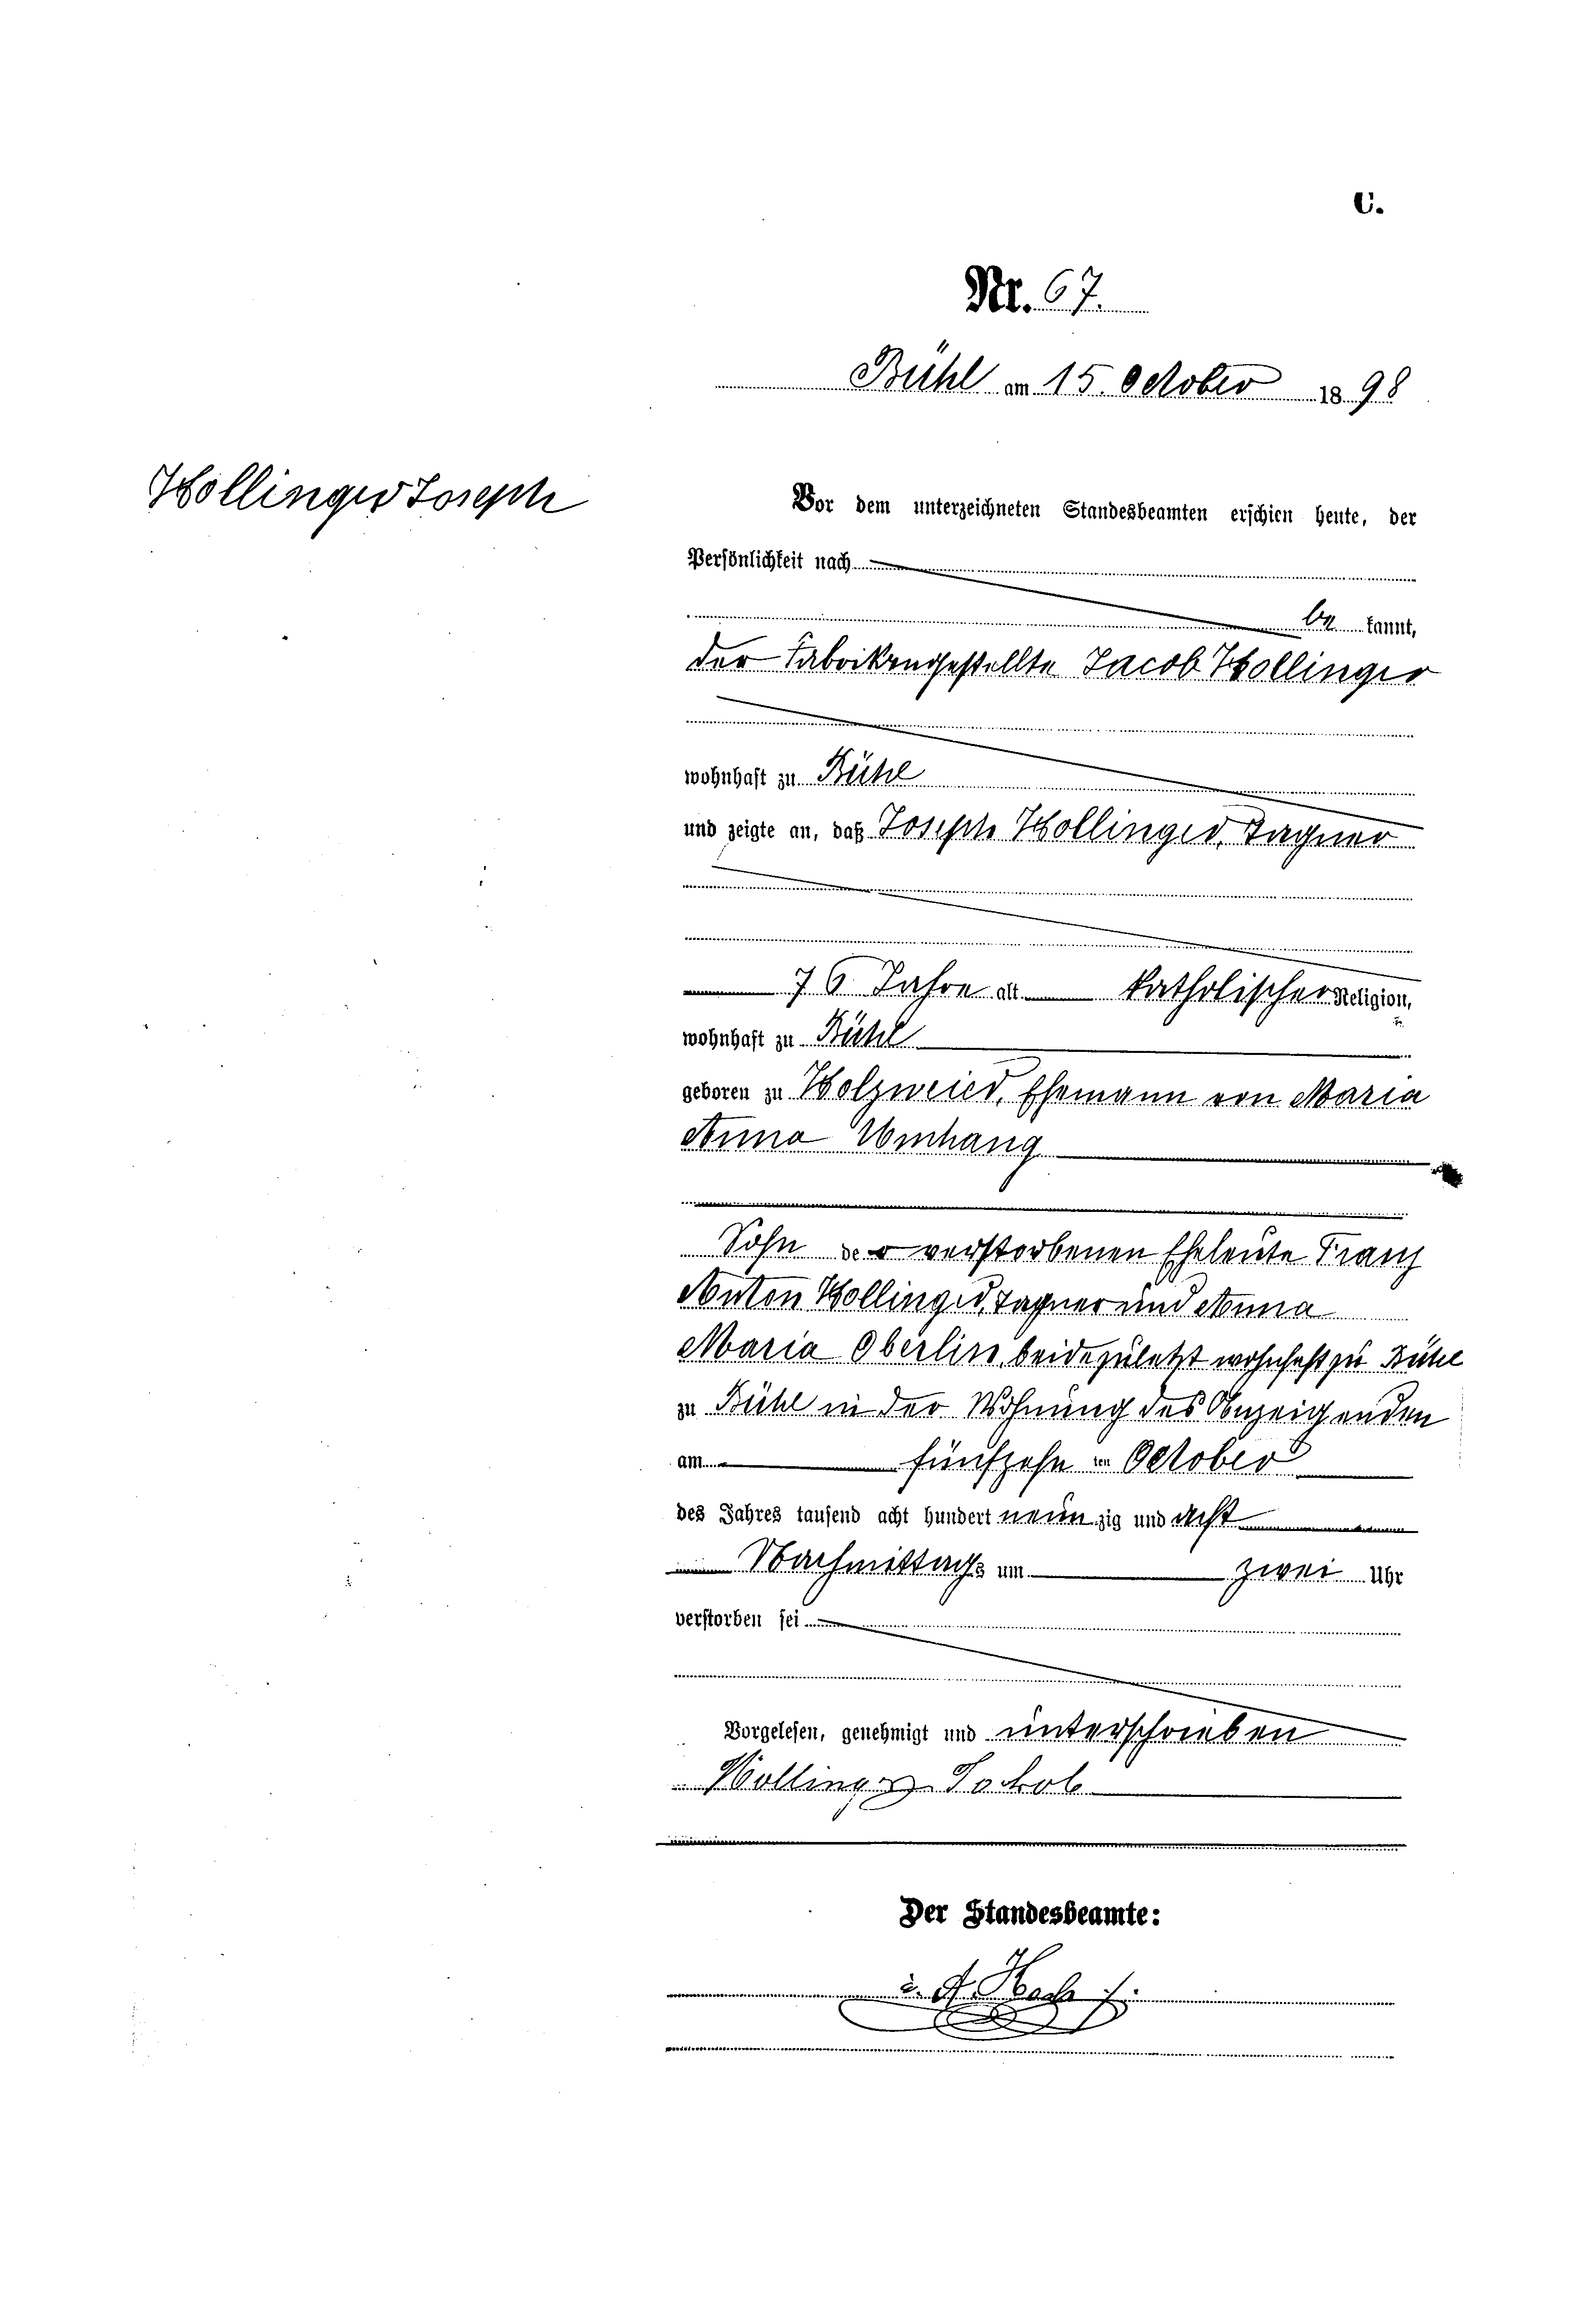 C.
Nr. 67.
Bühl am 15. October 1898
Hollinger Joseph
Vor dem unterzeichneten Standesbeamten erschien heute, der
Persönlichkeit nach
be kannt,
der Fabrikangestellte Jacob Hollinger
wohnhaft zu Bühl
und zeigte an, daß Joseph Hollinger, Tagner
76 Jahre alt katholischer Religion,
wohnhaft zu Bühl
geboren zu Holzweier, Ehemann von Maria
Anna Umhang
Sohn der verstorbenen Eheleute Franz
Anton Hollinger, Tagner und Anna
Maria Oberlin, beide zuletzt wohnhaft zu Bühl
zu Bühl in der Wohnung des Anzeigenden
am fünfzehn ten October
des Jahres tausend acht hundert neun zig und acht
Nachmittags um zwei Uhr
verstorben sei
Vorgelesen, genehmigt und unterschrieben
Hollinger Jakob
Der Standesbeamte: